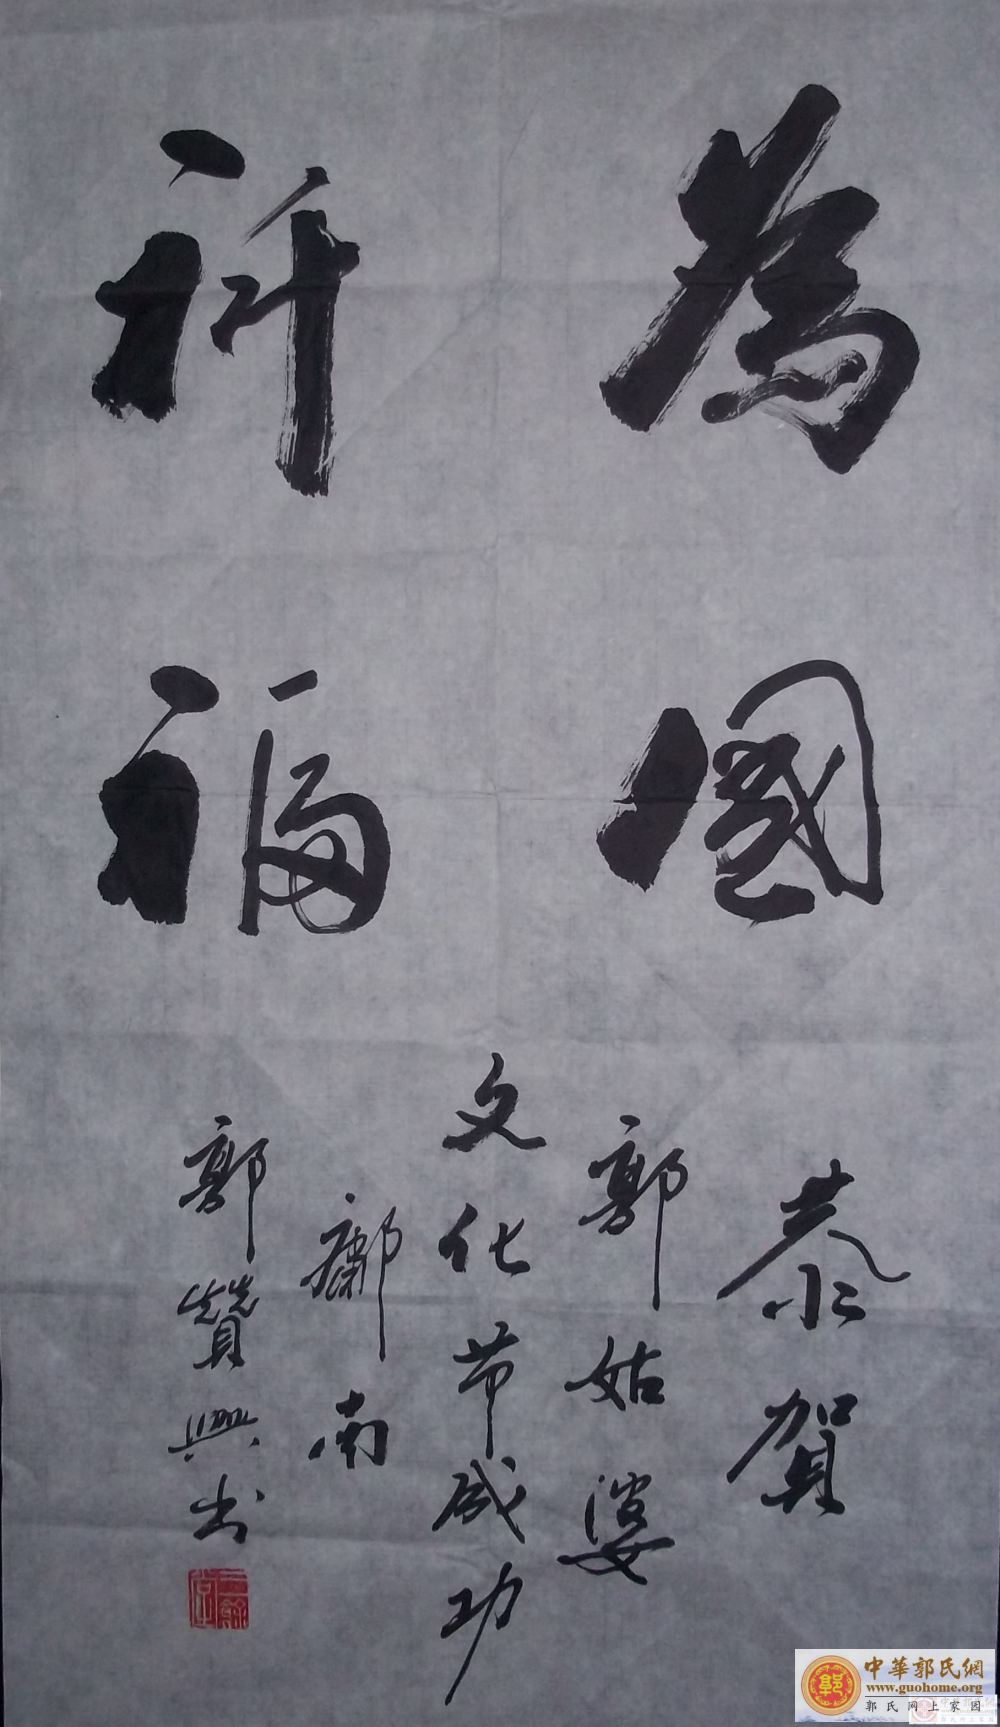 為國
祈福
恭賀
郭姑婆
文化节成功
鄺南
郭贊興书
中華郭氏網
www.guohome.org
郭氏网上家园